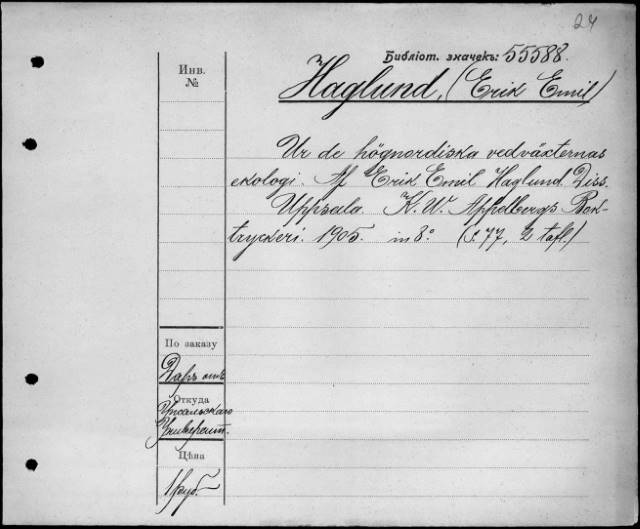 24
Библіот. значекъ: 55588.
Инв.
№
Haglund, (Erik Emil)
Ur de högnordiska vedväxternas
ekologi. Af Erik Emil Haglund. Diss.
Uppsala. K. W. Appelbergs Bok-
tryckeri. 1905. in 8° (S. 77, 2 tafl.)
По заказу
Даръ отъ
Откуда
Упсальскаго
Университ.
Цѣна
1 руб.